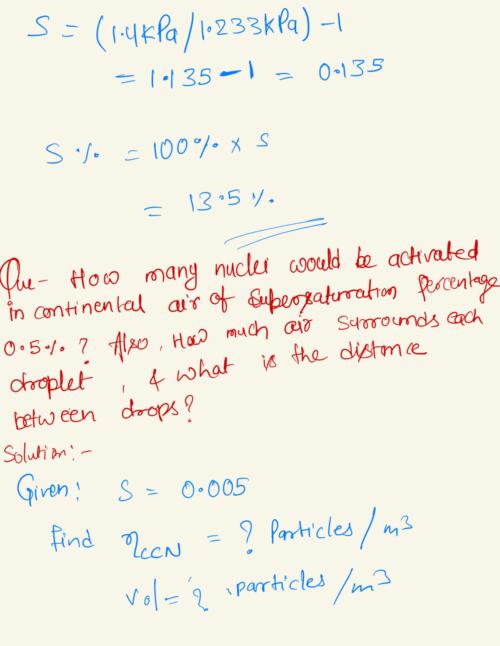 S = (1.4kPa/1.233kPa) -1
= 1.135 - 1 = 0.135
S % = 100% x s
= 13.5 %
Que- How many nuclei would be activated
in continental air of supersaturation percentage
0.5%? Also, How much air surrounds each
droplet, & what is the distance
between drops?
Solution:-
Given: S = 0.005
find ηCCN = ? Particles/m3
vol = ? particles/m3